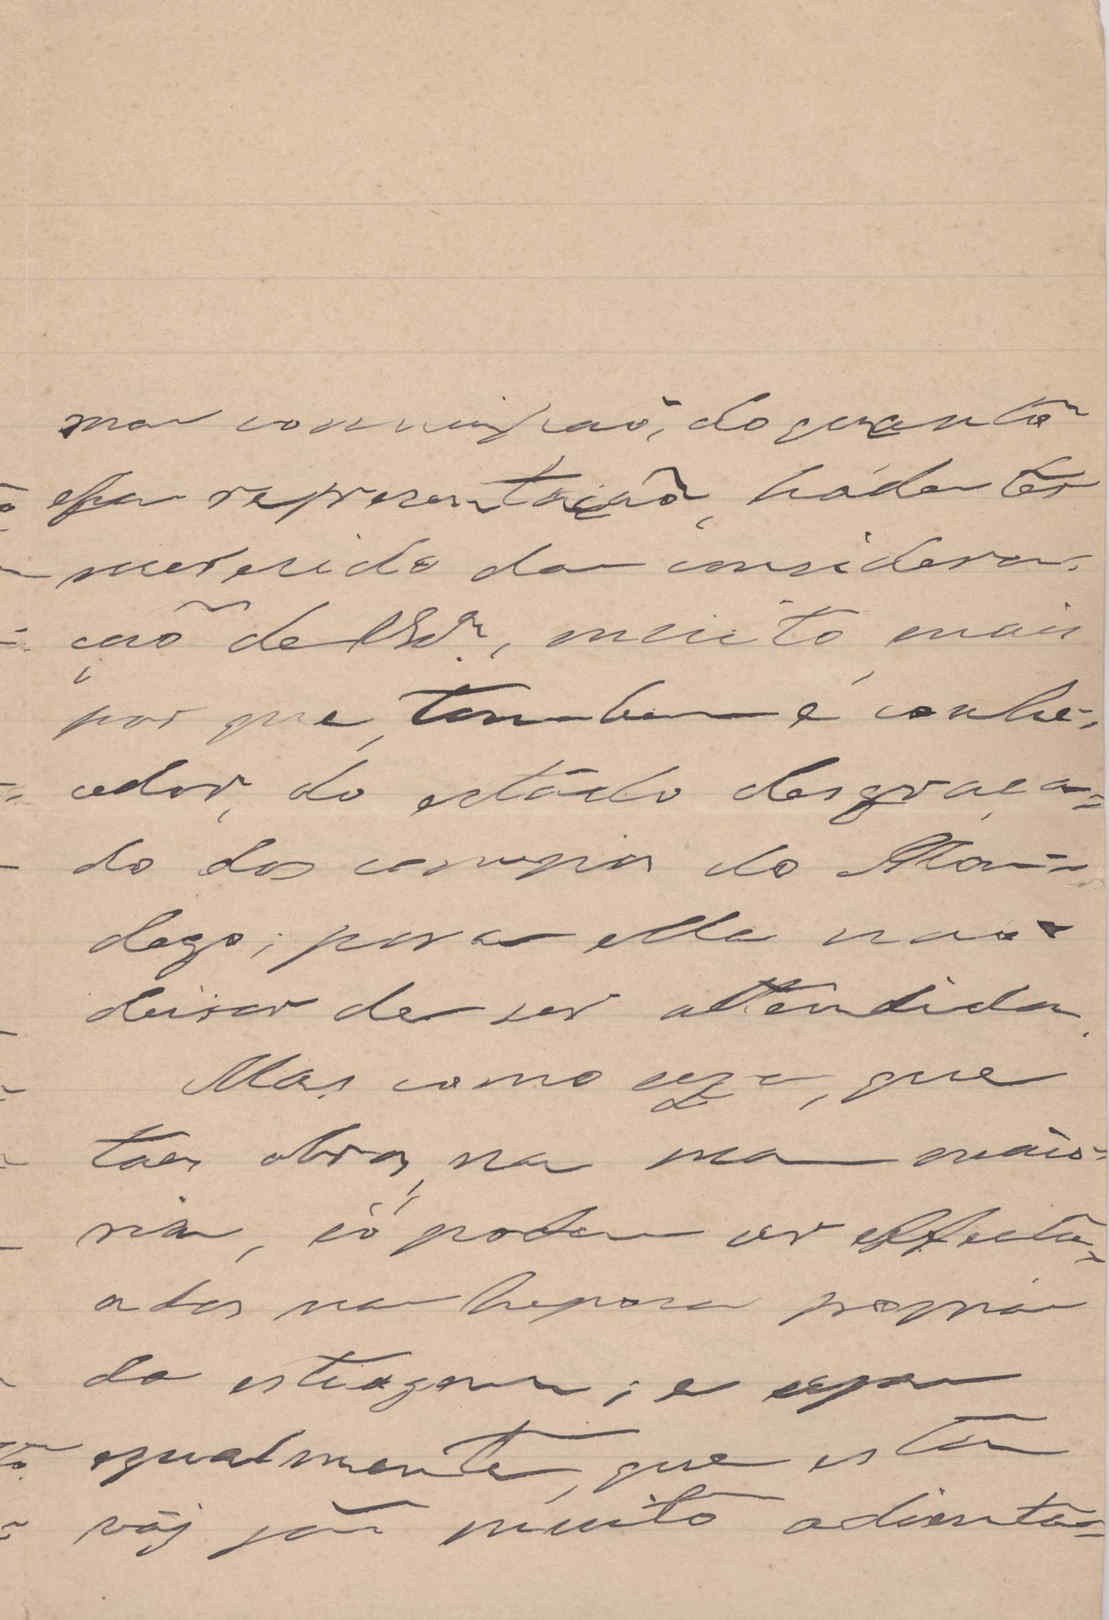 ma convicção, do quanto
essa representação, háde ter
merecido da considera-
ção de V Exª, muito mais
por que, tambem é conhe-
cedor, do estado desgraça-
do dos campos do Mon-
dego; para ella nao
deixar de ser attendida.
Mas, como seja, que
taes obras, na sua maio-
ria, só podem ser effectu-
adas na hepoca propria
da estiagem; e seja
egualmente, que esta
vaj já muito adianta-